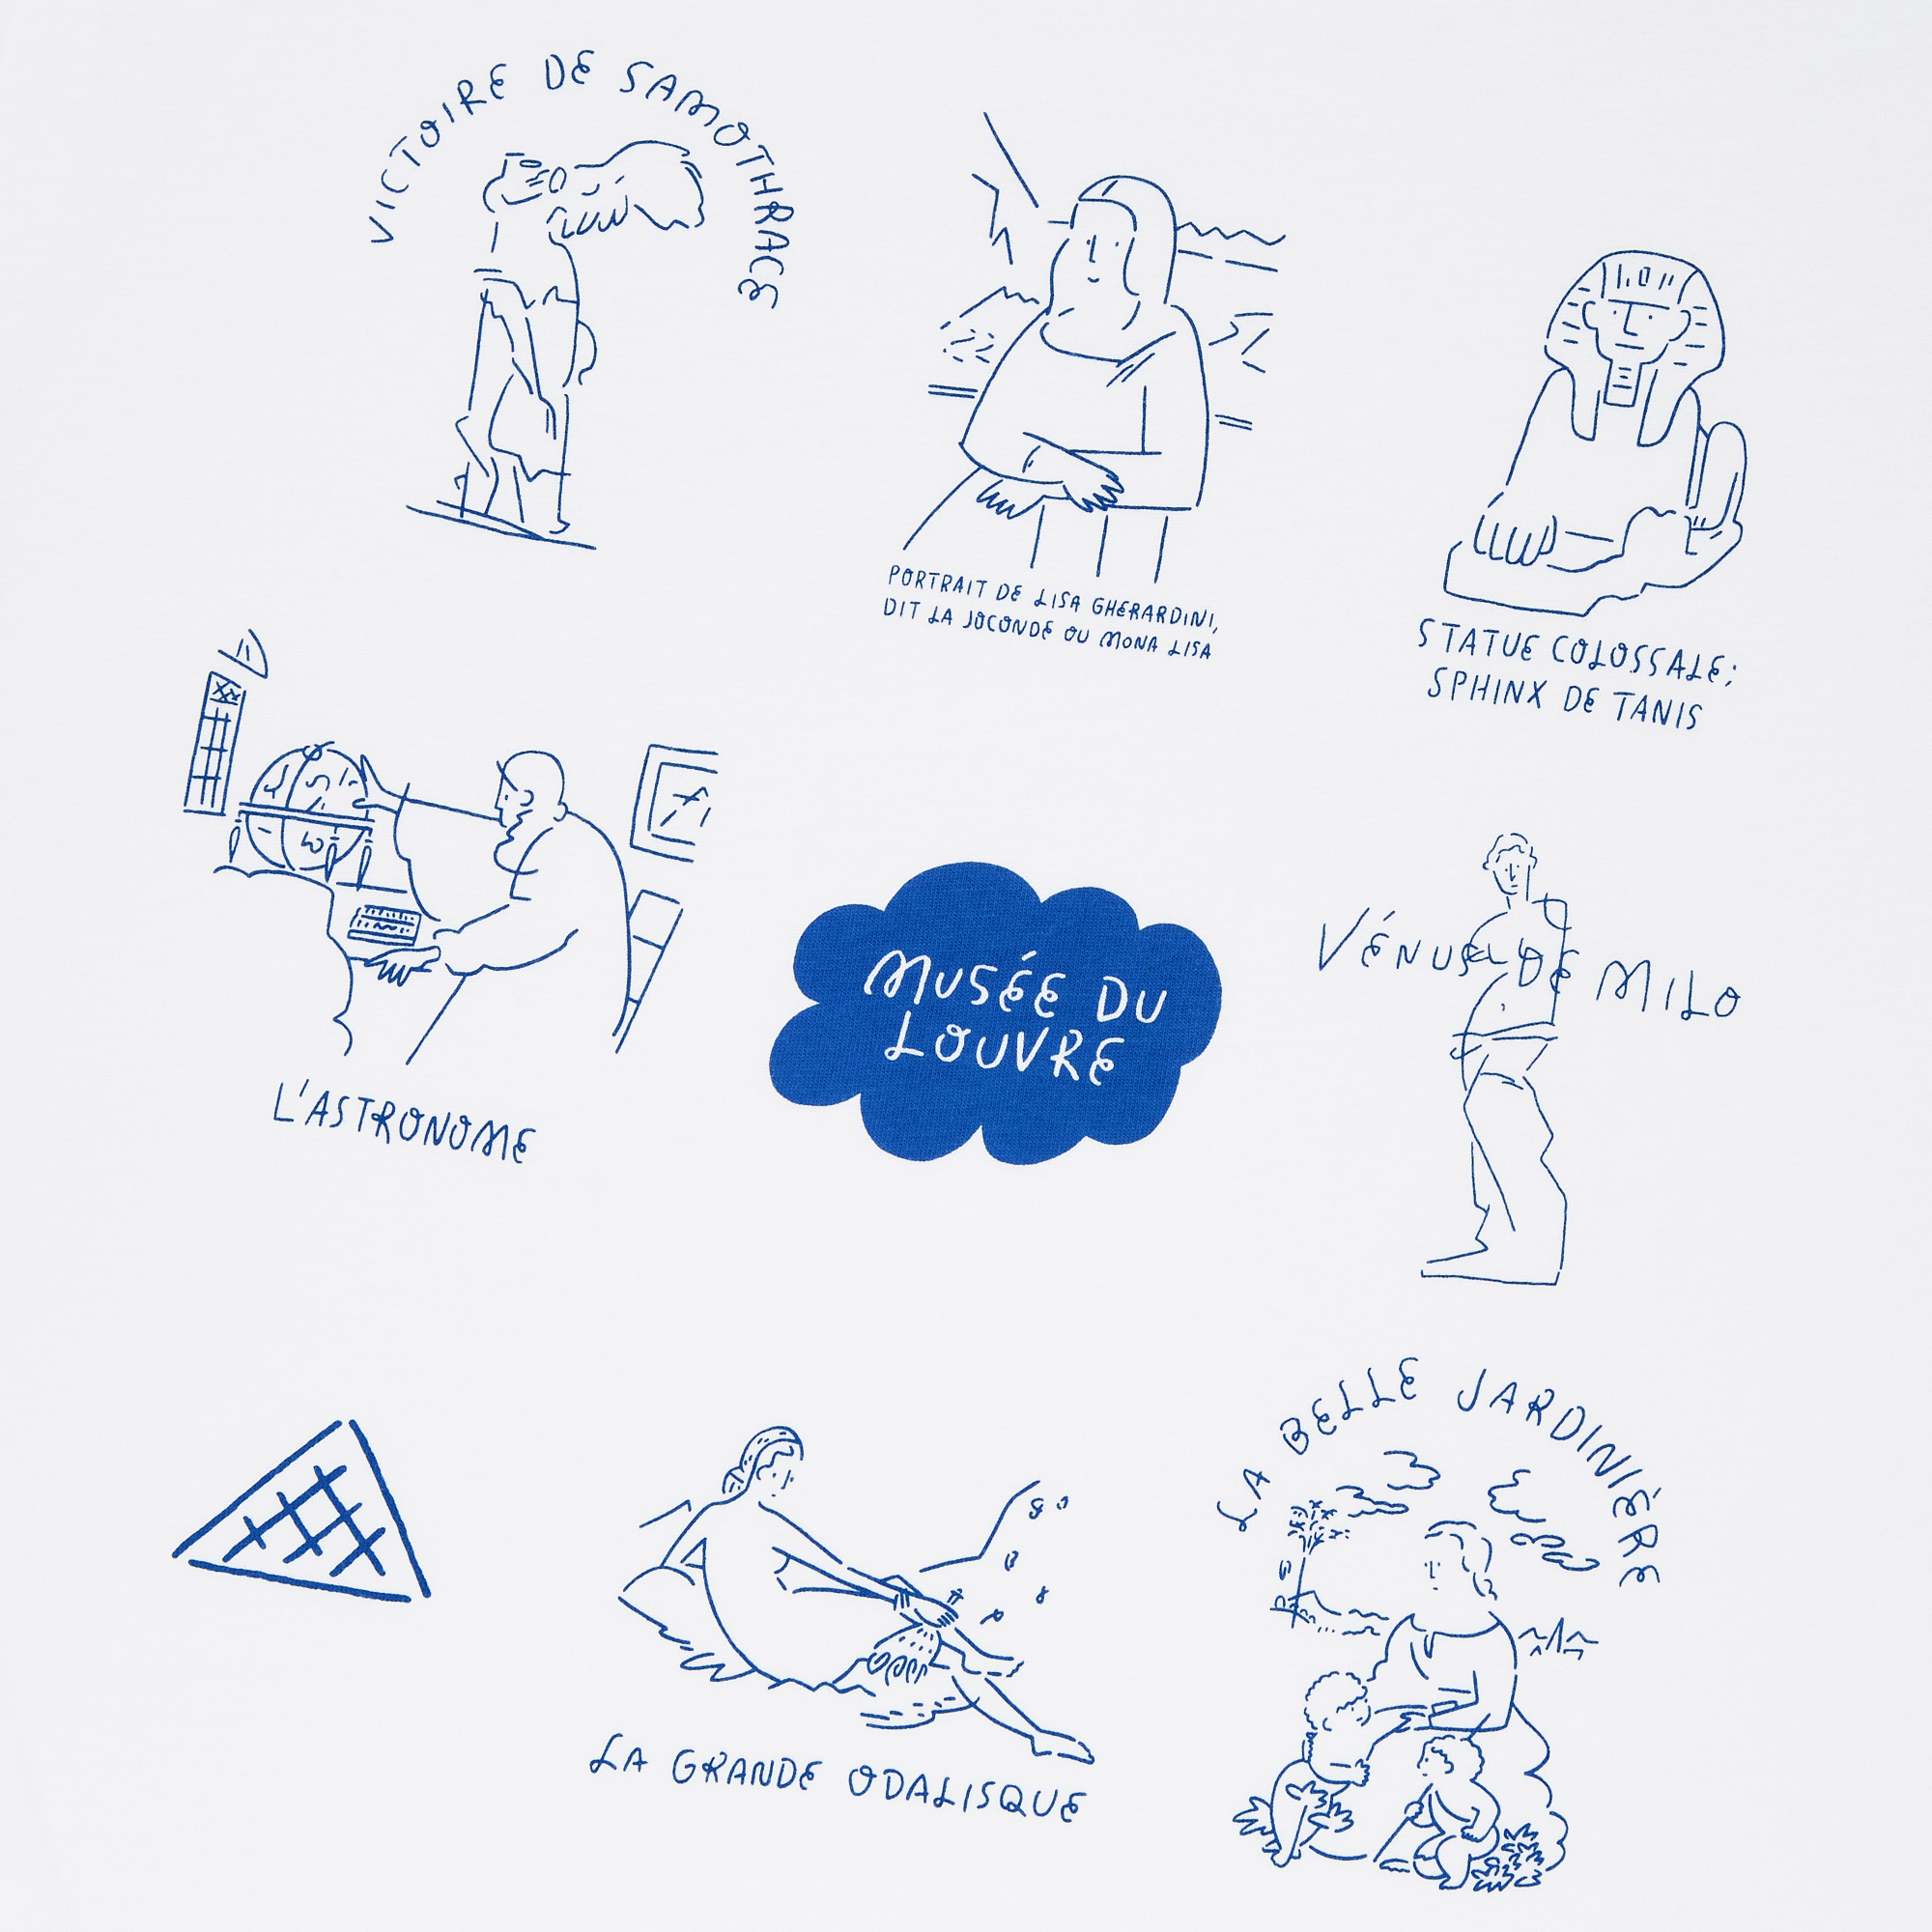 VICTOIRE DE SAMOTHRACE
PORTRAIT DE LISA GHERARDINI,
DIT LA JOCONDE OU MONA LISA
STATUE COLOSSALE;
SPHINX DE TANIS
L'ASTRONOME
MUSÉE DU
LOUVRE
VÉNUS DE MILO
LA GRANDE ODALISQUE
LA BELLE JARDINIÉRE